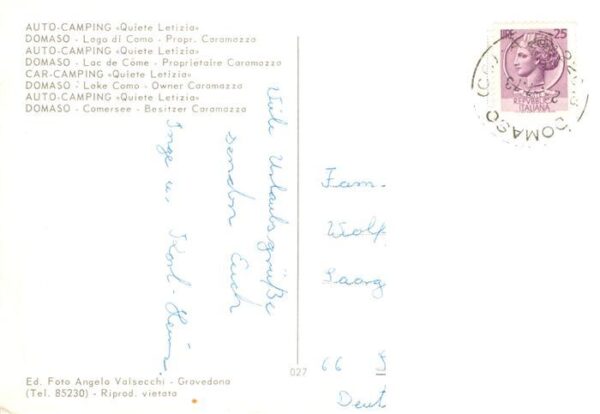 AUTO-CAMPING «Quiete Letizia»
DOMASO - Lago di Como - Propr. Caramazza
AUTO-CAMPING «Quiete Letizia»
DOMASO - Lac de Côme - Proprietaire Caramazza
CAR-CAMPING «Quiete Letizia»
DOMASO - Lake Como - Owner Caramazza
AUTO-CAMPING «Quiete Letizia»
DOMASO - Comersee - Besitzer Caramazza
Viele Urlaubsgrüße
senden Euch
Inge u. Karl-Heinz.
LIRE 25
REPVBBLICA
ITALIANA
DOMASO (CO)
Fam.
Wolf
Saarg
66
Deut
027
Ed. Foto Angelo Valsecchi - Gravedona
(Tel. 85230) - Riprod. vietata